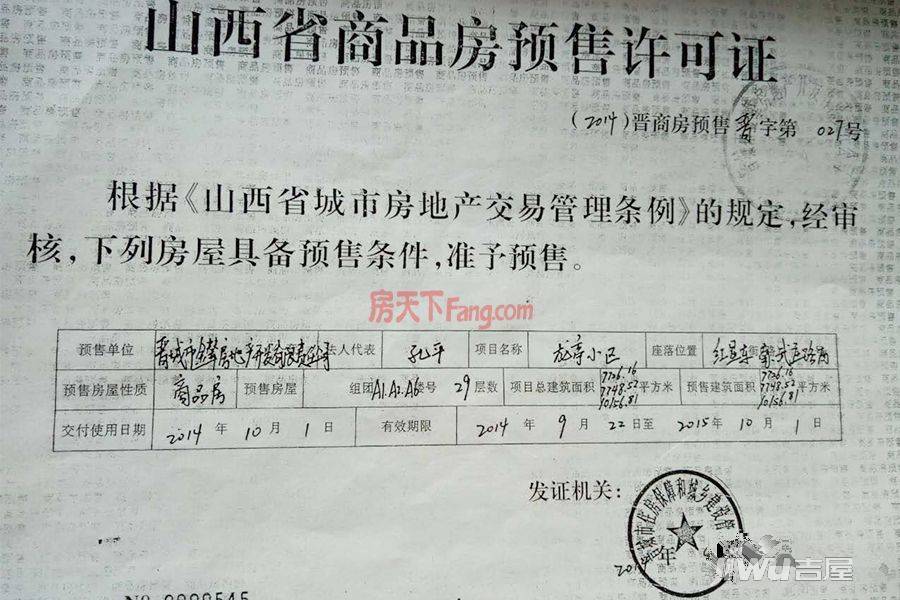 山西省商品房预售许可证
(2014)晋商房预售晋字第 027号
根据《山西省城市房地产交易管理条例》的规定,经审
核,下列房屋具备预售条件,准予预售。
房天下Fang.com
预售单位 晋城市 房地产开发有限责任公司 法人代表 孔平 项目名称 龙亭小区 座落位置 红星东街
7726.16 7726.16
预售房屋性质 商品房 预售房屋 组团A1.A2.A6楼号 29层数 项目总建筑面积 7748.52平方米 预售建筑面积 7748.52平方米
10156.81 10156.81
交付使用日期 2014 年 10 月 1 日 有效期限 2014 年 9 月 22 日至 2015 年 10 月 1 日
发证机关:
晋城市住房保障和城乡建设管
年
吉屋